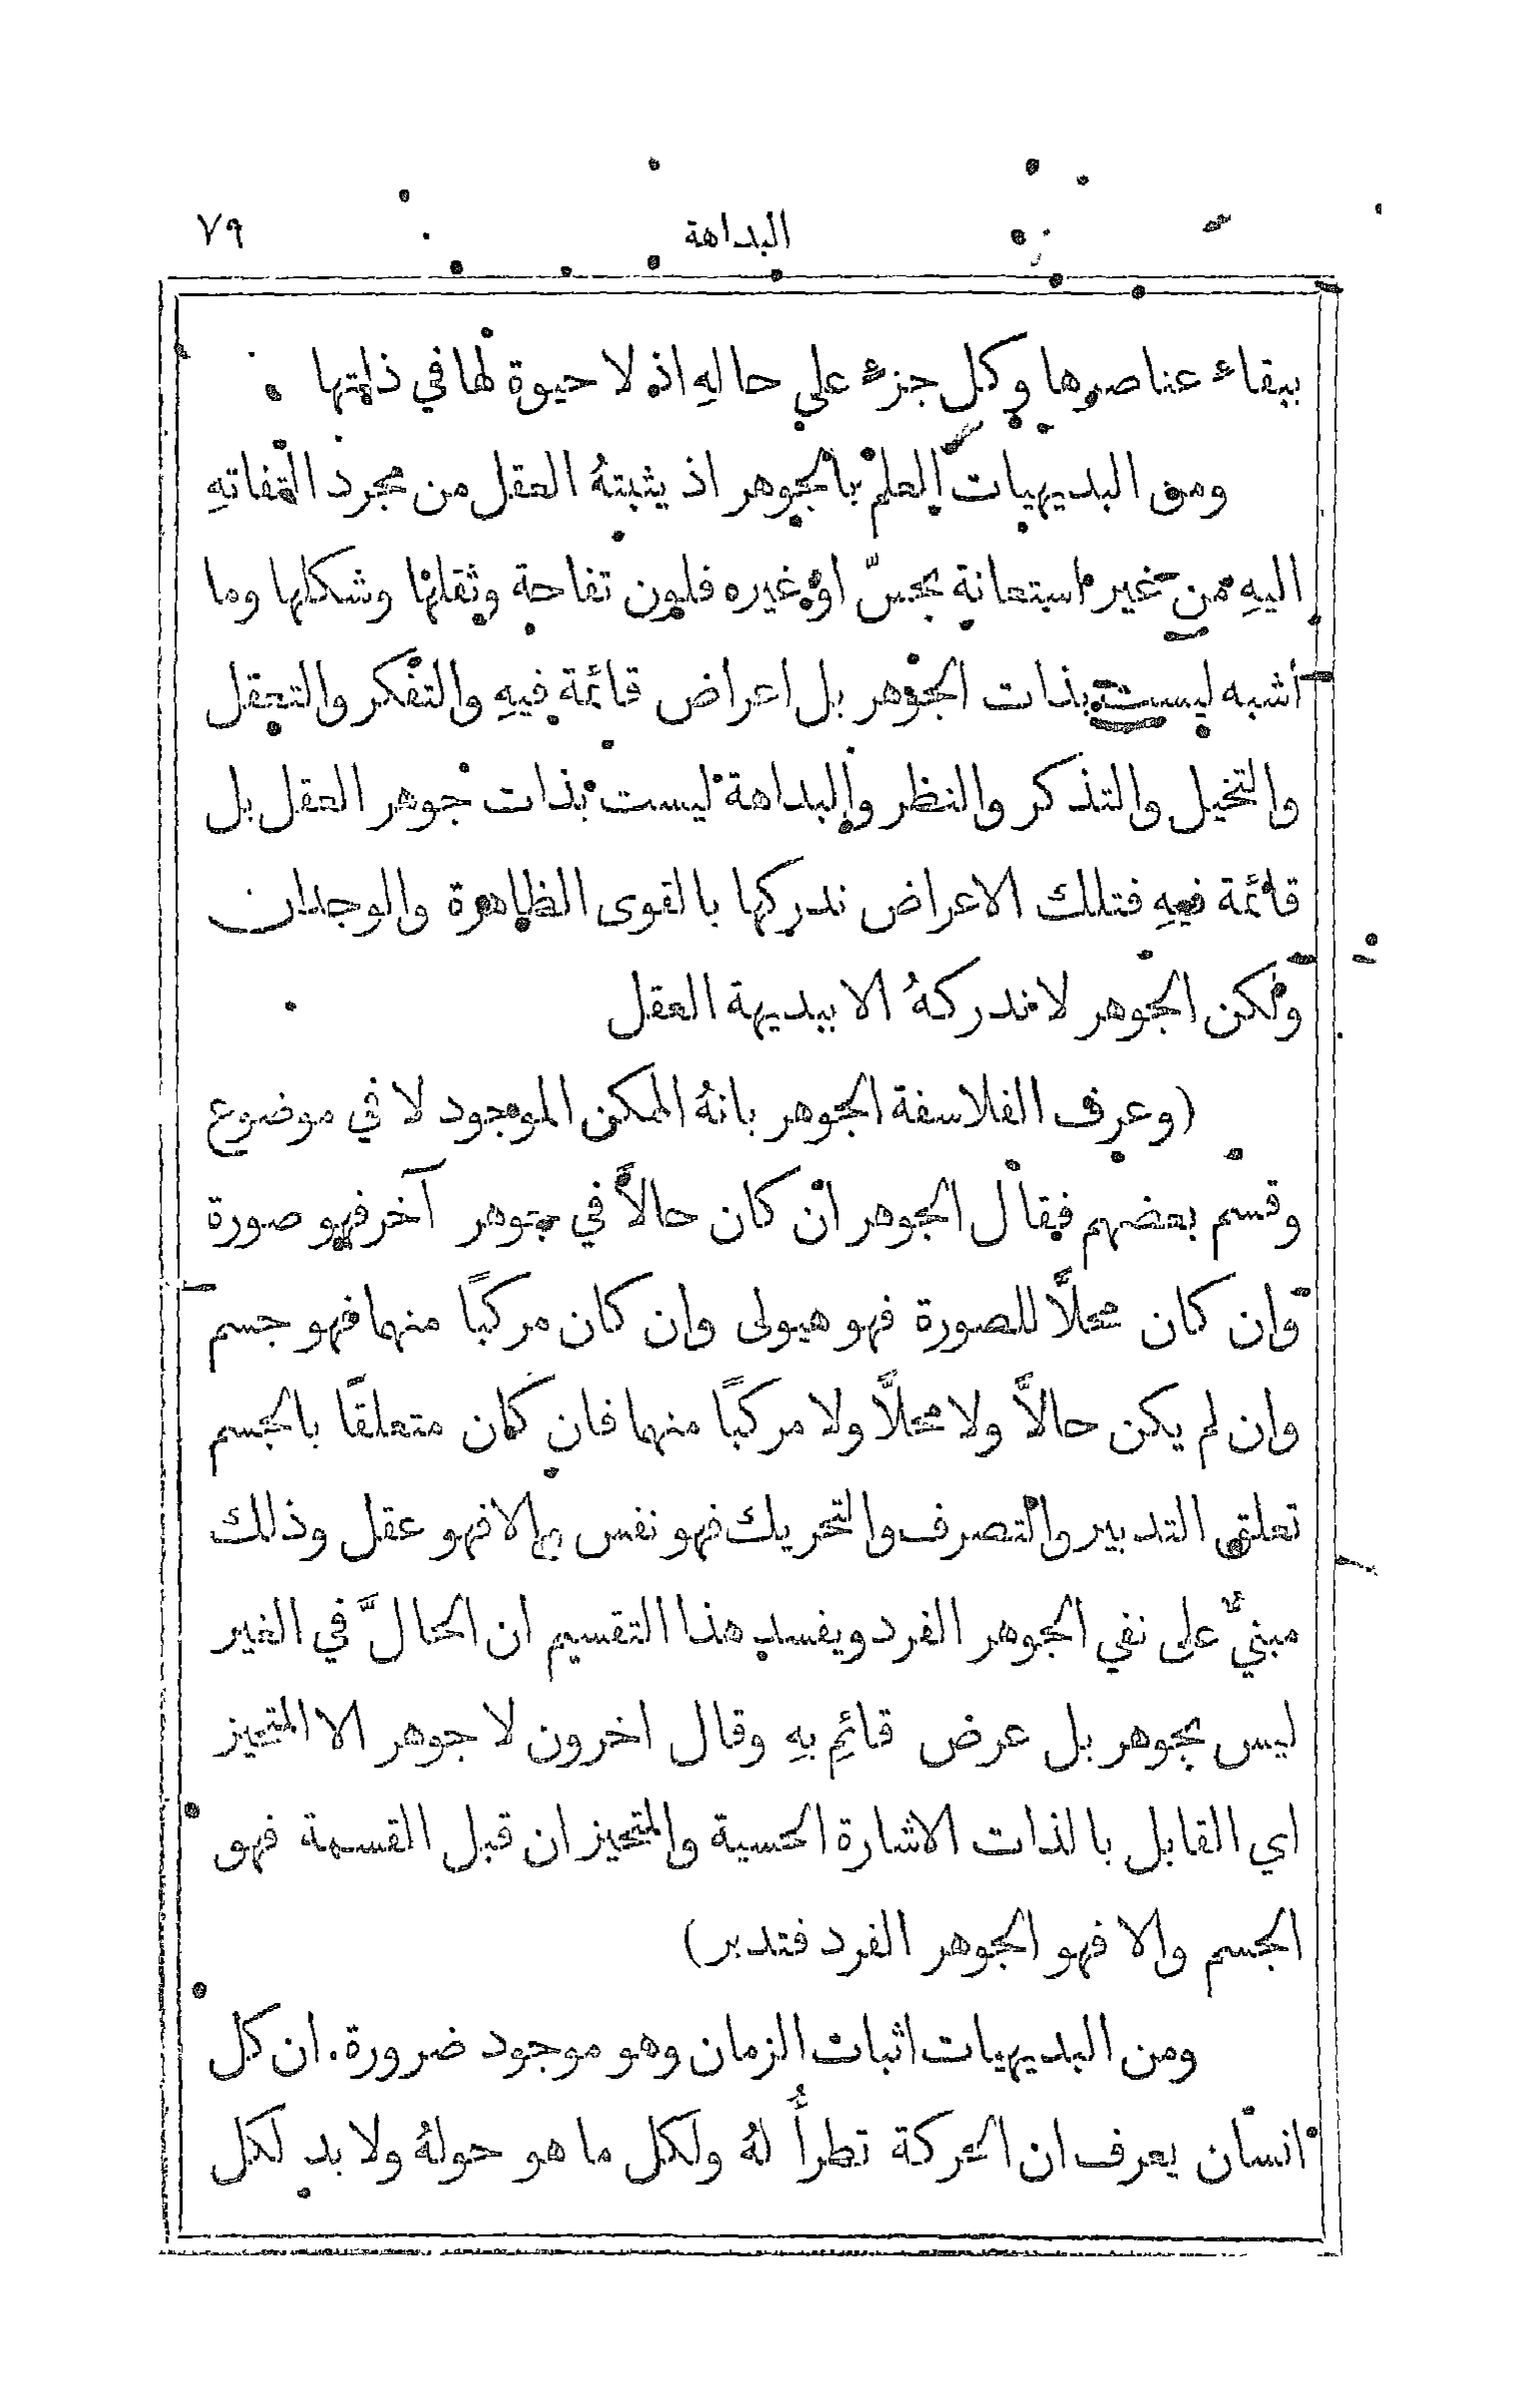 البداهة ٧٩
ببقاء عناصرها وكل جزء على حالهِ اذ لا حيوة لها في ذاتها
ومن البديهيات العلم بالجوهر اذ يثبتهُ العقل من مجرد التفاتهِ
اليهِ من غير استعانة بحسّ او غيره فلون تفاحة وثقلها وشكلها وما
أشبه ليست بذات الجوهر بل اعراض قائمة فيهِ والتفكر والتعقل
والتخيل والتذكر والنظر والبداهة ليست بذات جوهر العقل بل
قائمة فيهِ فتلك الاعراض ندركها بالقوى الظاهرة والوجدان
ولكن الجوهر لا ندركهُ الا ببديهة العقل
(وعرف الفلاسفة الجوهر بانهُ الممكن الموجود لا في موضوع
وقسم بعضهم فقال الجوهر ان كان حالاًّ في جوهر آخر فهو صورة
وان كان محلاًّ للصورة فهو هيولى وان كان مركبًا منهما فهو جسم
وان لم يكن حالاًّ ولا محلاًّ ولا مركبًا منهما فان كان متعلقًا بالجسم
تعلق التدبير والتصرف والتحريك فهو نفس والا فهو عقل وذلك
مبنيٌّ على نفي الجوهر الفرد ويفسد هذا التقسيم ان الحالَّ في الغير
ليس بجوهر بل عرض قائِم بهِ وقال اخرون لا جوهر الا المتحيز
اي القابل بالذات الاشارة الحسية والمتحيز ان قبل القسمة فهو
الجسم والا فهو الجوهر الفرد فتدبر)
ومن البديهيات اثبات الزمان وهو موجود ضرورة. ان كل
انسان يعرف ان الحركة تطرأُ لهُ ولكل ما هو حولهُ ولا بد لكل